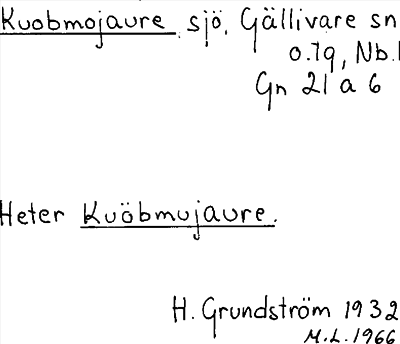 Kuobmojaure, sjö, Gällivare sn
o.tg, Nb.l
Gn 21 a 6
Heter Kuöbmujaure.
H. Grundström 1932
M.L. 1966